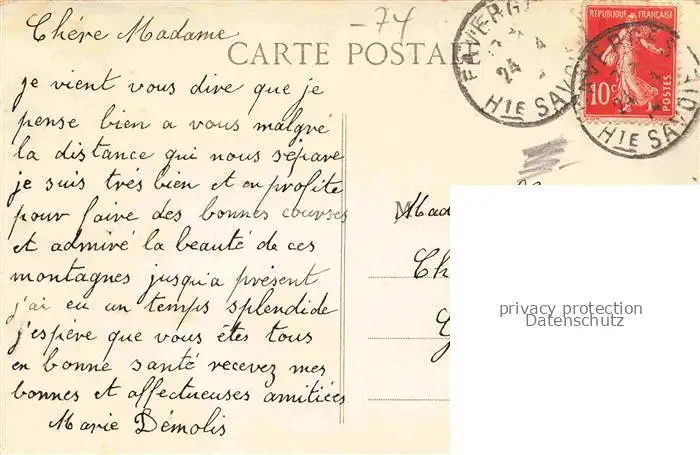 -74
Chére Madame
CARTE POSTALE
je vient vous dire que je
pense bien a vous malgré
la distance qui nous sépare
je suis trés bien et en profite
pour faire des bonnes courses
et admiré la beauté de ces
montagnes jusqu'a présent
j'ai eu un temps splendide
j'espére que vous étes tous
en bonne santé recevez mes
bonnes et affectueuses amitiées
Marie Démolis
FAVERGES
24
Hte SAVOIE
REPUBLIQUE FRANÇAISE
10c
POSTES
FAVERGES
24
Hte SAVOIE
Mad
Ch
privacy protection
Datenschutz